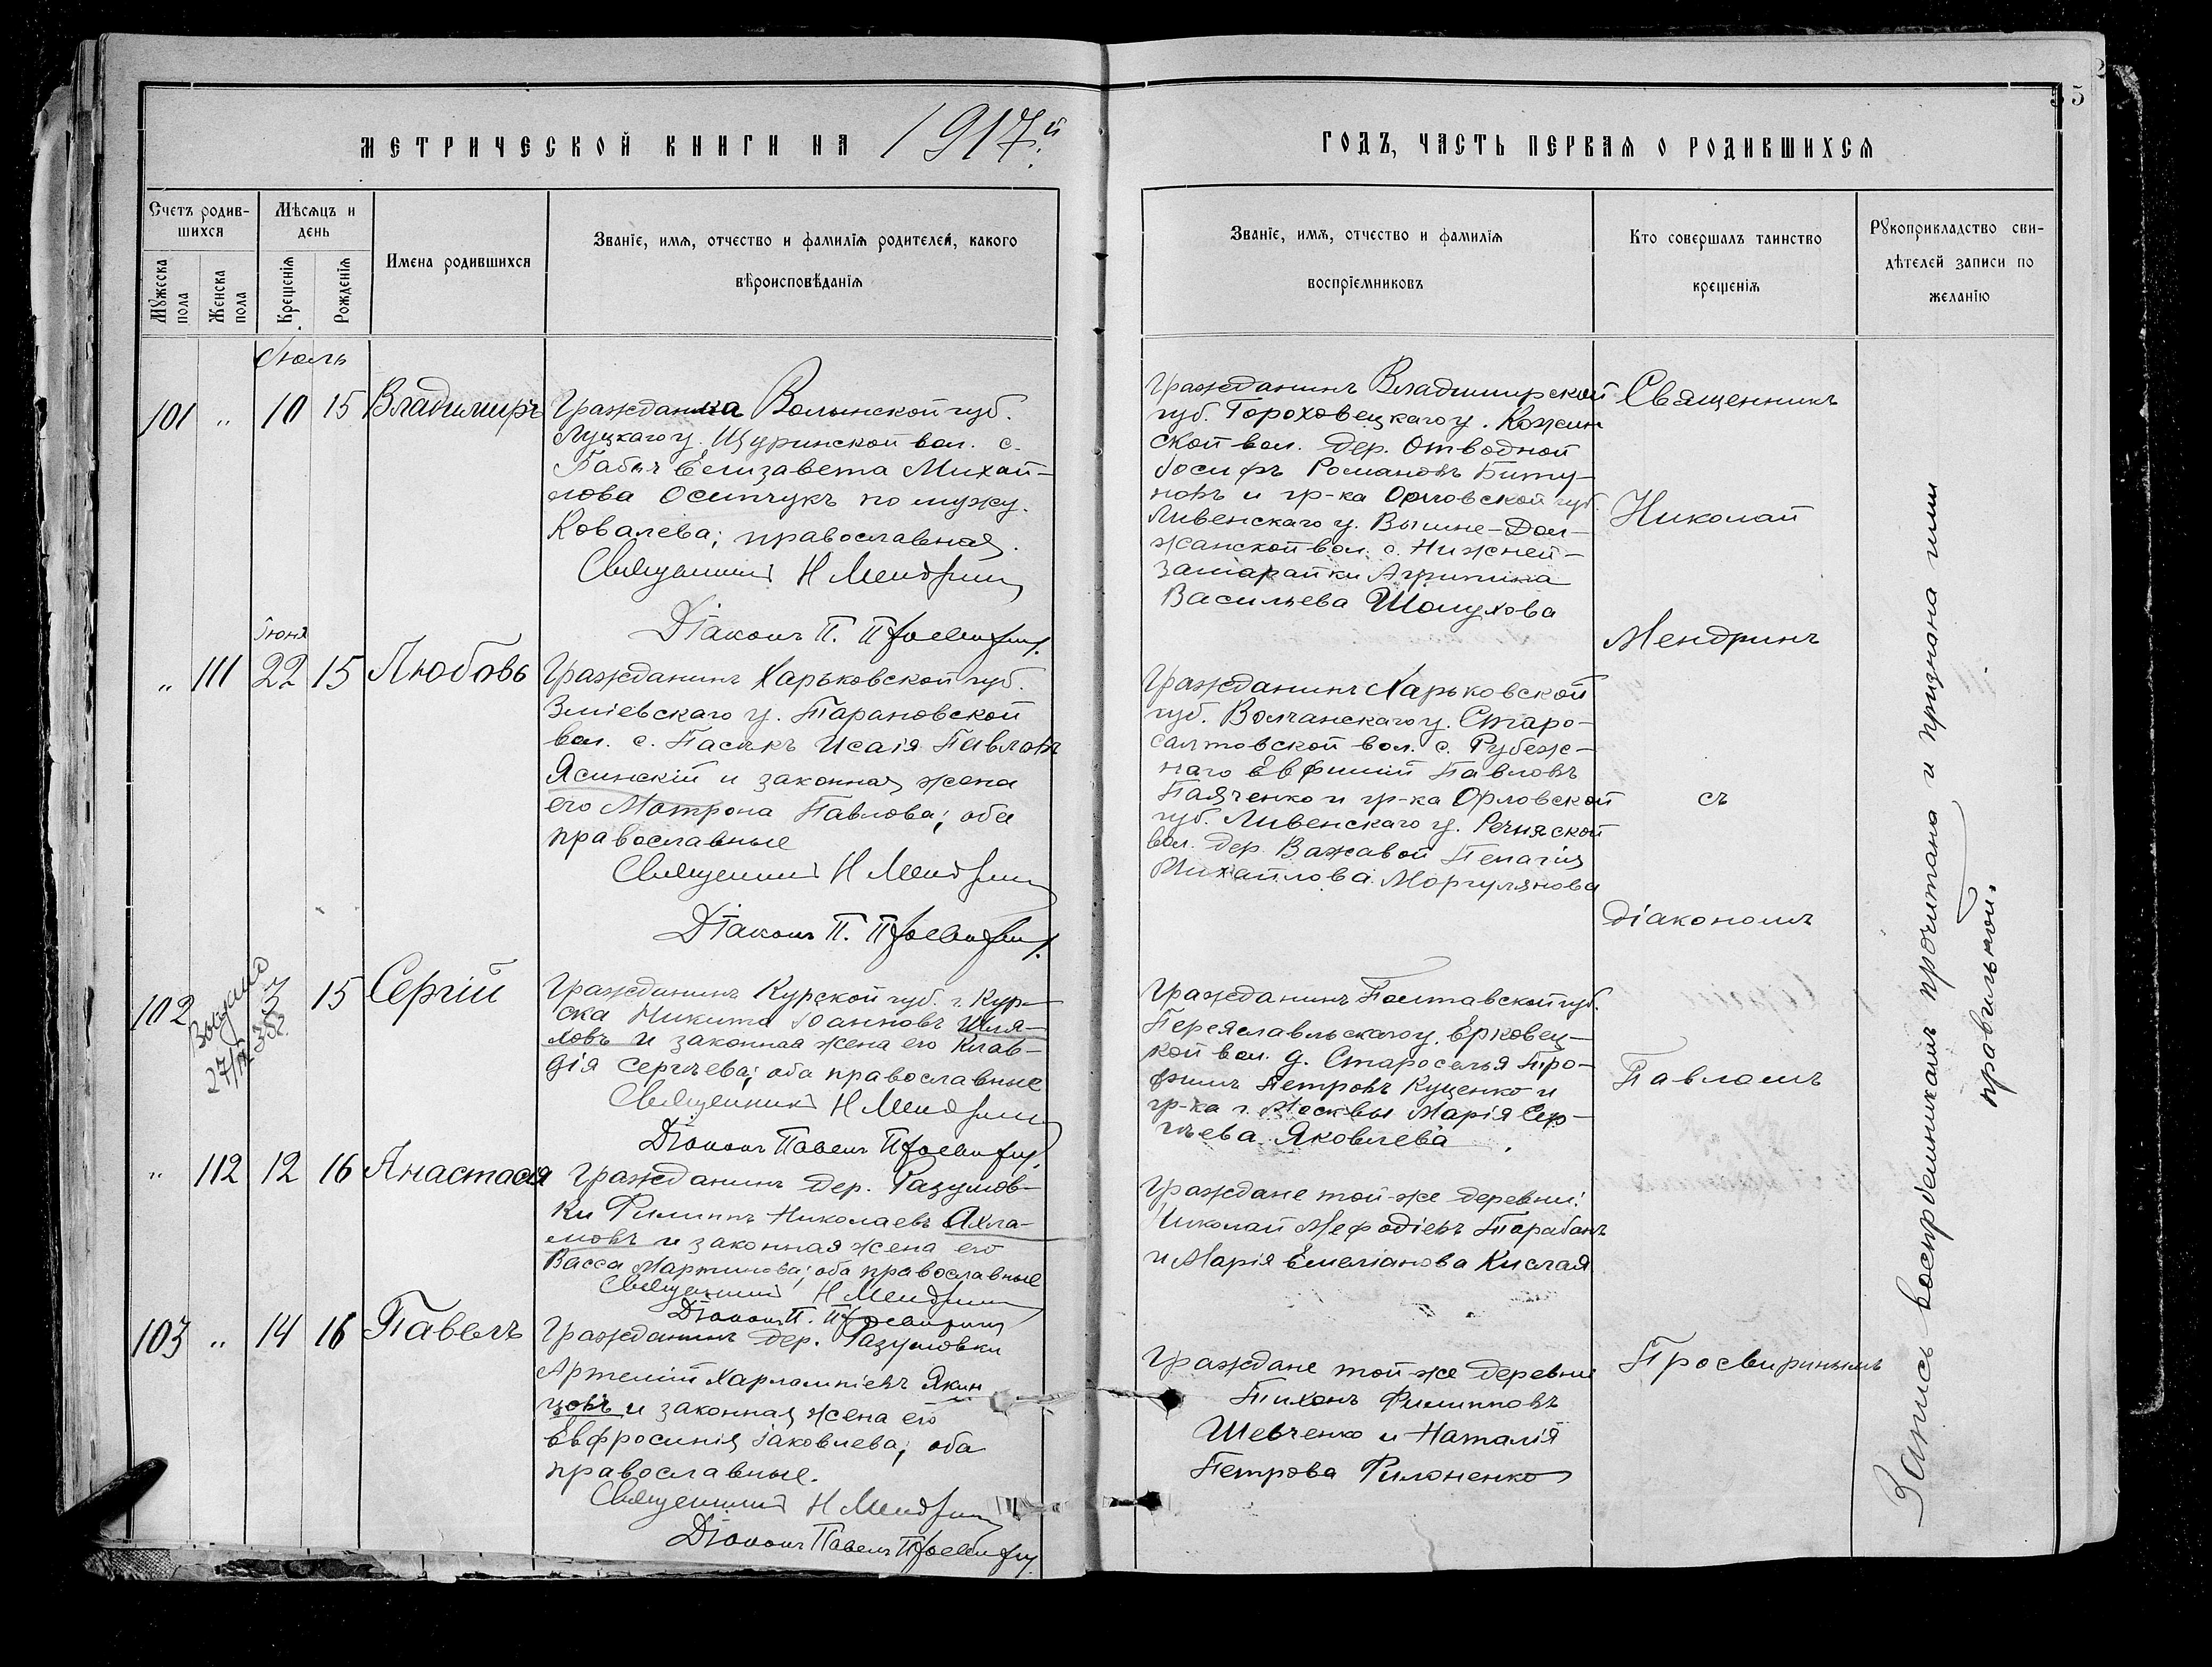 35
МЕТРИЧЕСКОЙ КНИГИ НА 1917й
ГОДЪ, ЧАСТЬ ПЕРВАЯ О РОДИВШИХСЯ
Счетъ родив-
шихся
Мужеска пола
Женска пола
Мѣсяцъ и
день
Крещенія
Рожденія
Имена родившихся
Званіе, имя, отчество и фамилія родителей, какого
вѣроисповѣданія
Званіе, имя, отчество и фамилія
воспріемниковъ
Кто совершалъ таинство
крещенія
Рукоприкладство сви-
дѣтелей записи по
желанію
Іюль
101 " 10 15 Владимиръ
Гражданка Волынской губ.
Луцкаго у. Щуринской вол. с.
Бабья Елизавета Михай-
лова Осипчукъ по мужу
Ковалева; православная.
Священникъ Н Мендринъ
Діаконъ П. Просвиринъ.
Гражданинъ Владимирской
губ. Гороховецкаго у. Кожин
ской вол. дер. Отводной
Іосифъ Романовъ Биту-
новъ и гр-ка Орловской губ.
Ливенскаго у. Вышне-Дол-
жанской вол. с. Нижней-
Замарайки Агрипина
Васильева Шолухова
Іюня
" 111 22 15 Любовь
Гражданинъ Харьковской губ.
Зміевскаго у. Тарановской
вол. с. Пасѣкъ Исаія Павловъ
Ясинскій и законная жена
его Матрона Павлова; оба
православные
Священникъ Н Мендринъ
Діаконъ П. Просвиринъ.
Гражданинъ Харьковской
губ. Волчанскаго у. Старо-
салтовской вол. с. Рубеж-
наго Евфимій Павловъ
Паяченко и гр-ка Орловской
губ. Ливенскаго у. Речияской
вол. дер. Важавой Пелагія
Михайлова Моргулянова
102 3 15 Сергій
27/IX 35г.
Гражданинъ Курской губ. г. Кур-
ска Никита Іоанновъ Шля-
ховъ и законная жена его Клав-
дія Сергѣева; оба православные
Священникъ Н Мендринъ
Діаконъ Павелъ Просвиринъ.
Гражданинъ Полтавской губ.
Переяславльскаго у. Ерковец-
кой вол. д. Староселья Тро-
фимъ Петровъ Куценко и
гр-ка г. Москвы Марія Сер-
гѣева Яковлева
" 112 12 16 Анастасія
Гражданинъ дер. Разумов-
ки Филиппъ Николаевъ Ахла-
мовъ и законная жена его
Васса Мартинова; оба православные
Священникъ Н Мендринъ
Діаконъ П. Просвиринъ
Граждане той-же деревни:
Николай Мефодіевъ Тарабанъ
и Марія Емеліанова Кислая
103 " 14 16 Павелъ
Гражданинъ дер. Разумовки
Артемій Харлампіевъ Якин
цовъ и законная жена его
Евфросинія Іаковлева; оба
православные.
Священникъ Н Мендринъ
Діаконъ Павелъ Просвиринъ.
Граждане той же деревни
Тихонъ Филипповъ
Шевченко и Наталія
Петрова Филоненко
Священникъ
Николай
Мендринъ
съ
діакономъ
Павломъ
Просвиринымъ
Запись воспріемникамъ прочитана и признана ими
правильной.